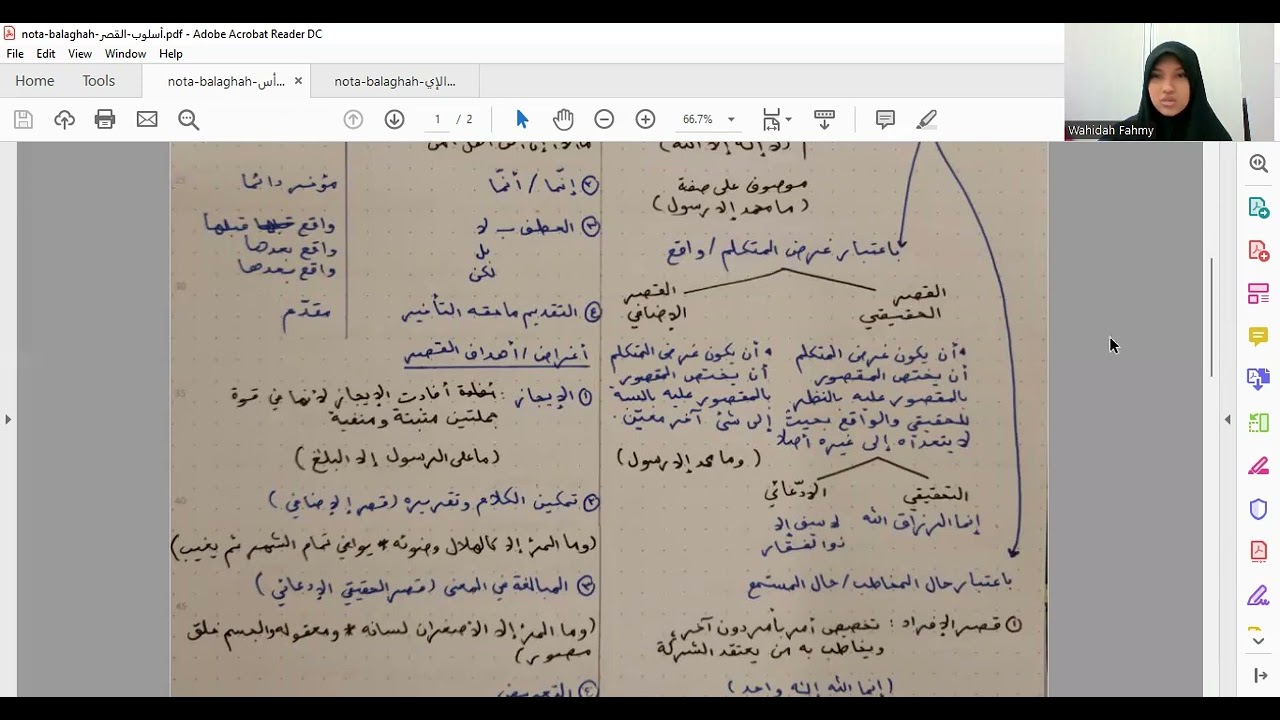 nota-balaghah-أسلوب-القصر.pdf - Adobe Acrobat Reader DC
File Edit View Window Help
Home Tools nota-balaghah-أس... × nota-balaghah-الإي...
1 / 2 66.7%
Wahidah Fahmy
(لا إله إلا الله)
موصوف على صفة
(ما محمد إلا رسول)
باعتبار غرض المتكلم / واقع
القصر الحقيقي
القصر الإضافي
• أن يكون غرض المتكلم
أن يختص المقصور
بالمقصور عليه بالنظر
للحقيقي والواقع بحيث
لا يتعداه إلى غيره أصلا
• أن يكون غرض المتكلم
أن يختص المقصور
بالمقصور عليه بالنسبة
إلى شئ آخر معيّن.
(وما محمد إلا رسول)
التحقيقي
إنما الرزاق الله
الادّعائي
لا سيف إلا
ذو الفقار
باعتبار حال المخاطب / حال المستمع
① قصر الإفراد : تخصيص أمر بأمر دون آخر،
ويخاطب به من يعتقد الشركة
(إنما الله إله واحد)
② إنّما / أنّما مؤخر دائما
③ العطف بـ لا واقع قبلها
بل واقع بعدها
لكن واقع بعدها
④ التقديم ما حقه التأخير مقدّم
أغراض / أهداف القصر
① الإيجاز : أفادت الإيجاز لأنها في قوة
جملتين مثبتة ومنفية
(ما على الرسول إلا البلغ)
② تمكين الكلام وتقريره (قصر الإضافي)
(وما المرء إلا كالهلال وضوئه * يوافي تمام الشهر ثم يغيب)
③ المبالغة في المعنى (قصر الحقيقي الإدعائي)
(وما المرء إلا الأصغران لسانه * ومعقوله والجسم خلق
مصور)
④ التعريض